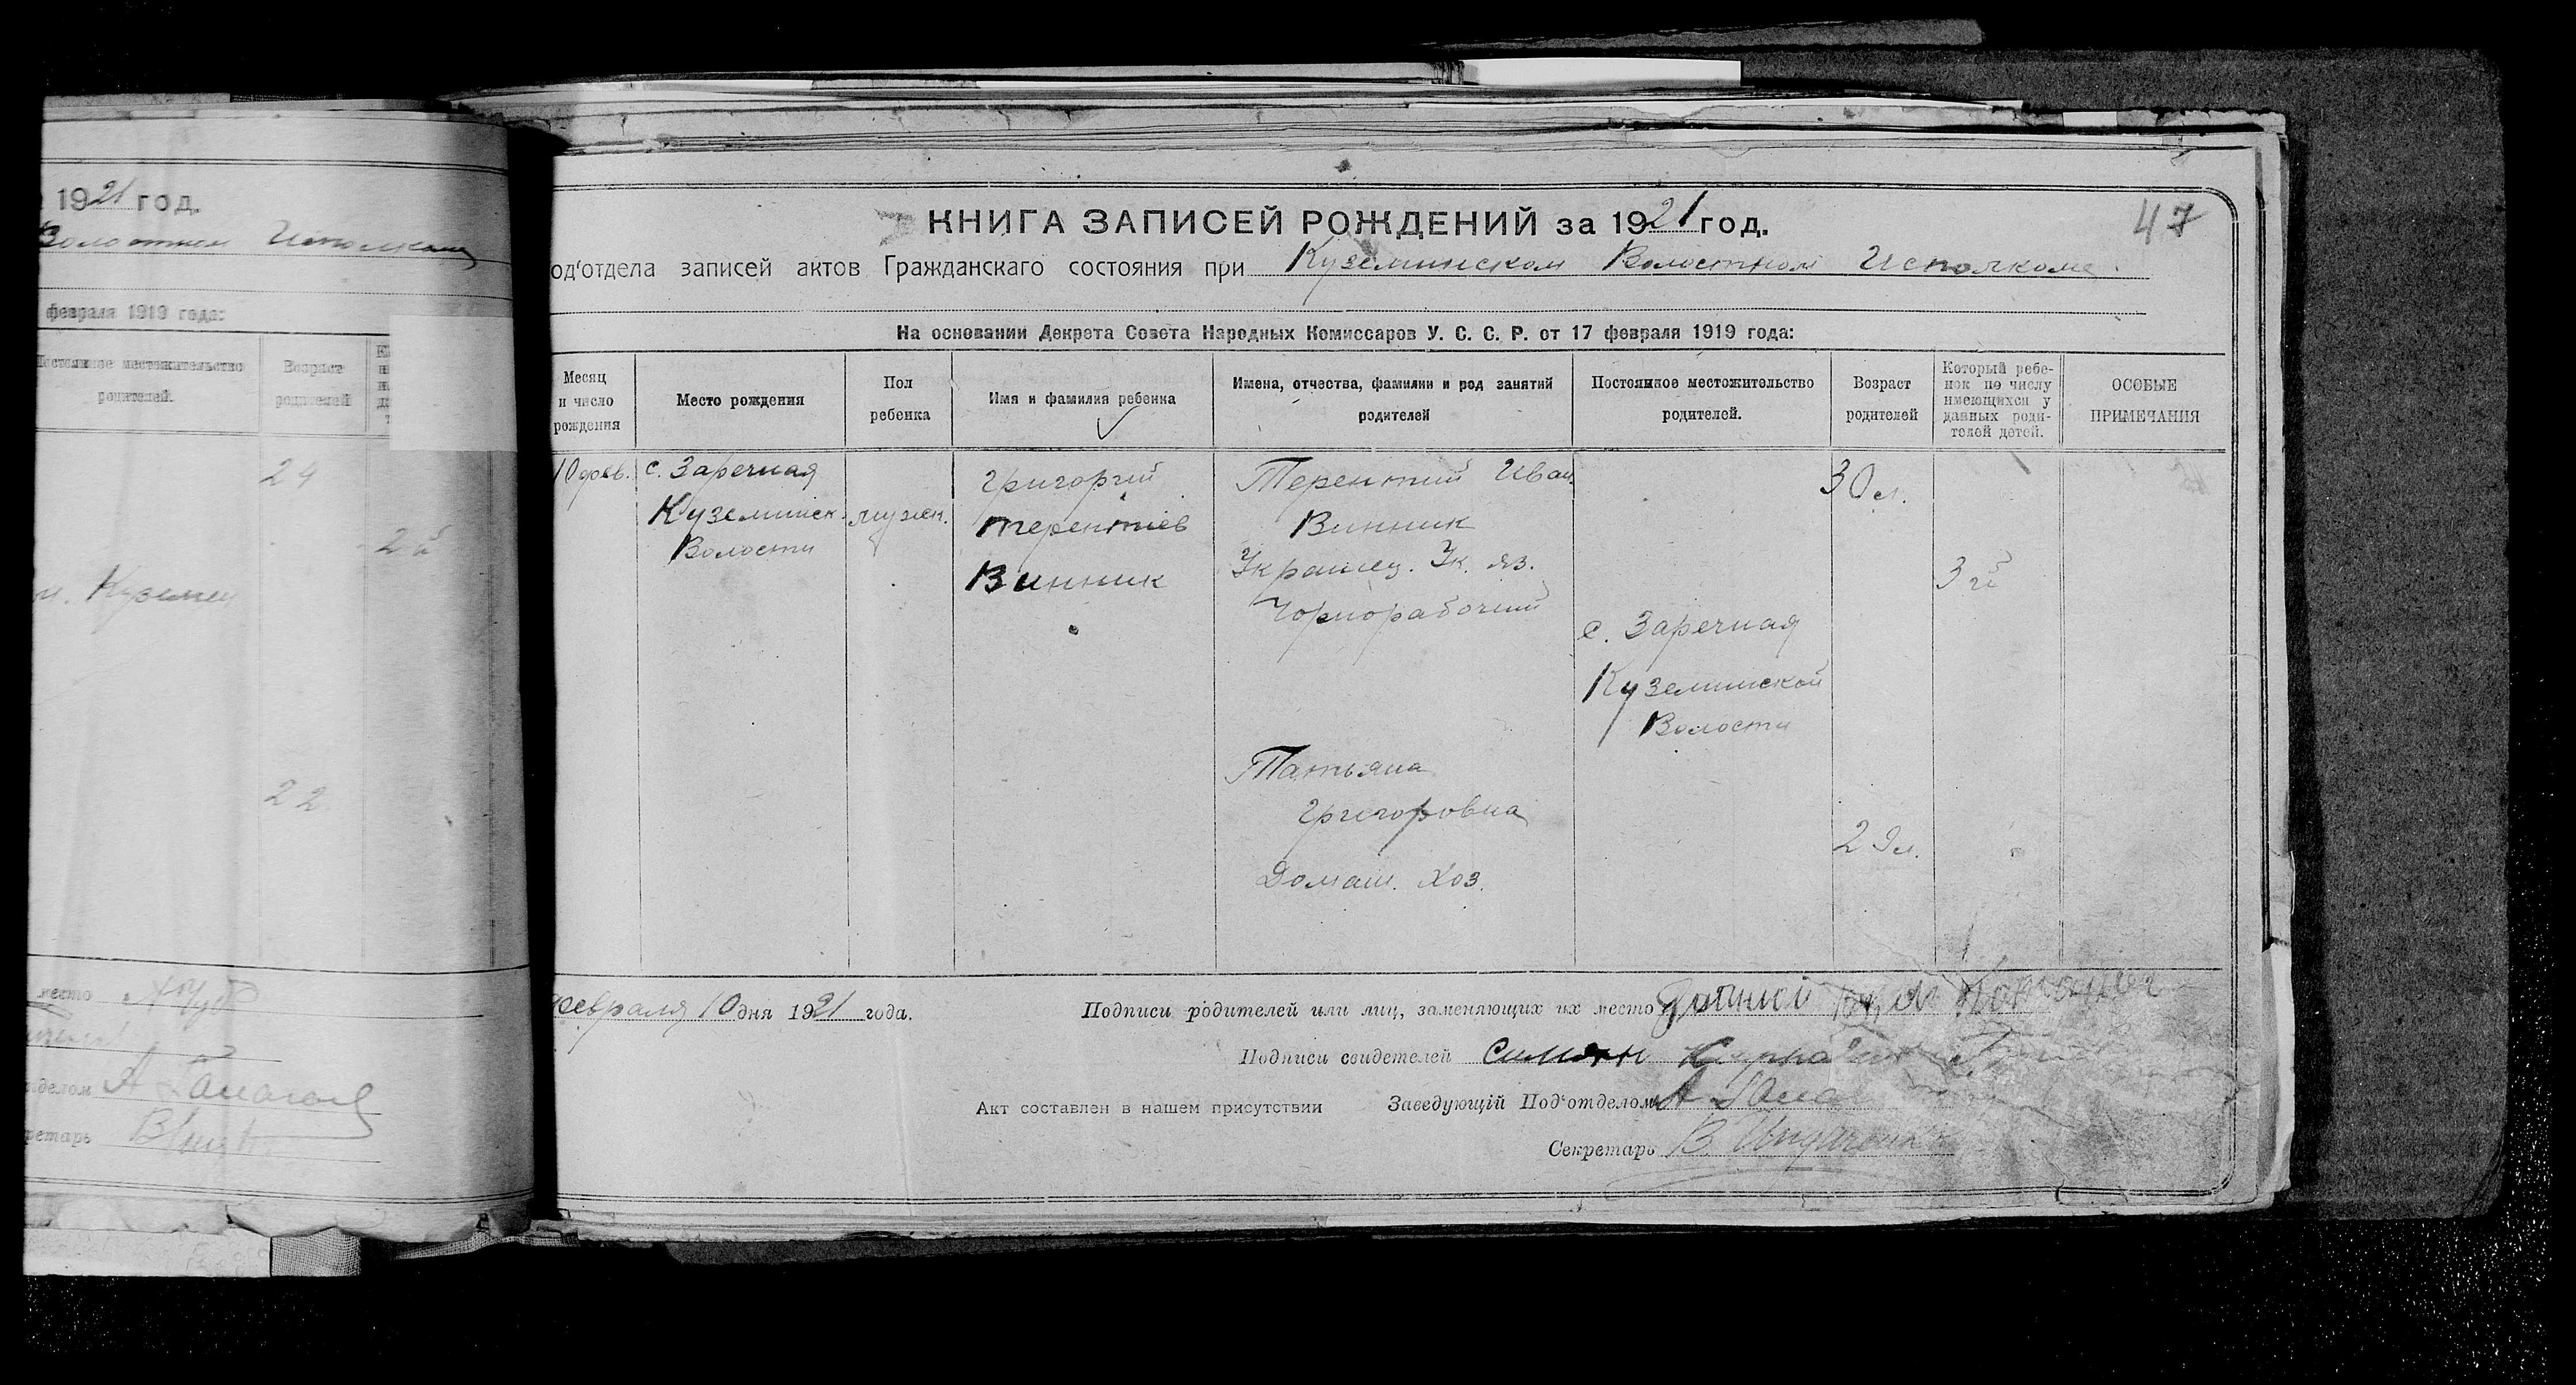 1921 год.
Волостном Исполкоме
февраля 1919 года:
Постоянное местожительство
родителей.
Возраст
родителей
24
2й
м. Куземин
22
место
А
ретарь
47
КНИГА ЗАПИСЕЙ РОЖДЕНИЙ за 1921 год.
од‘отдела записей актов Гражданскаго состояния при Куземинском Волостном Исполкоме.
На основании Декрета Совета Народных Комиссаров У. С. С. Р. от 17 февраля 1919 года:
Месяц
и число
рождения
Место рождения
Пол
ребенка
Имя и фамилия ребенка
Имена, отчества, фамилии и род занятий
родителей
Постоянное местожительство
родителей.
Возраст
родителей
Который ребе-
нок по числу
имеющихся у
данных роди-
телей детей.
ОСОБЫЕ
ПРИМЕЧАНИЯ
10 февв.
с. Заречная
Куземинск.
Волости
мужск.
Григорий
Терентиев
Винник
Терентий Иван.
Винник
Украинец. Ук. яз.
Чорнорабочий
Татьяна
Григоровна
Домаш. Хоз.
с. Заречная
Куземинской
Волости
30 л.
29 л.
3й
февраля 10 дня 1921 года.
Подписи родителей или лиц, заменяющих их место
Подписи свидетелей
Акт составлен в нашем присутствии
Заведующій Под‘отделом А
Секретарь В.